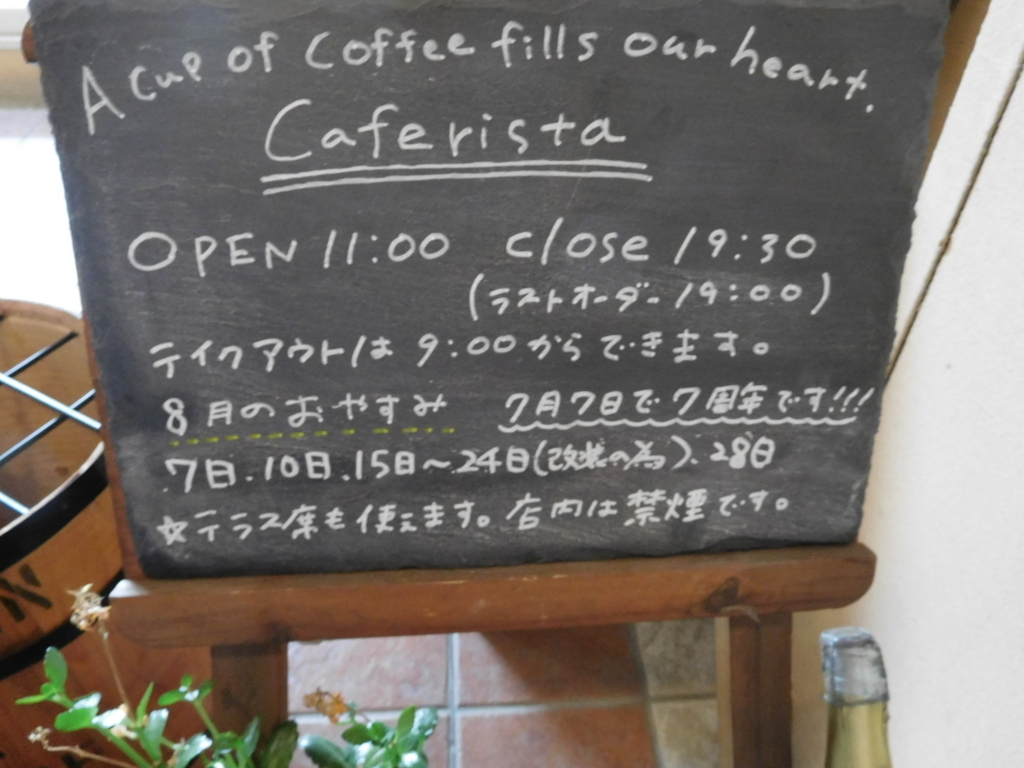 A cup of coffee fills our heart.
Caferista
OPEN 11:00 close 19:30
(ラストオーダー 19:00)
テイクアウトは 9:00からできます。
8月のおやすみ 7月7日で7周年です!!!
7日.10日.15日〜24日(改装の為)、28日
☆テラス席も使えます。店内は禁煙です。